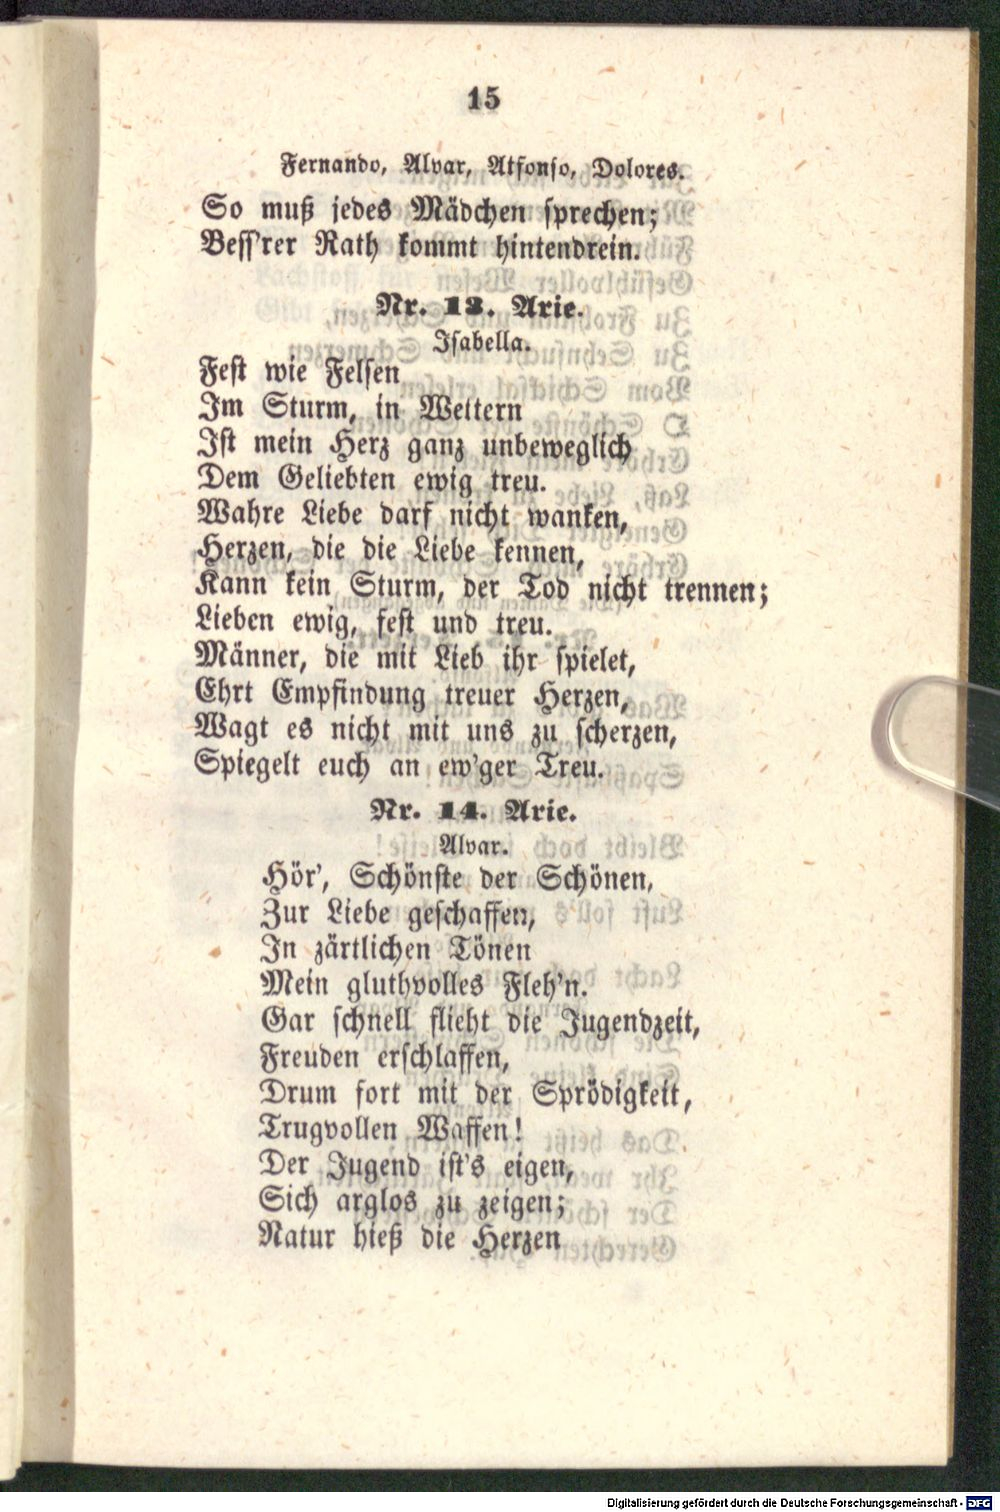 15
Fernando, Alvar, Atfonso, Dolores.
So muß jedes Mädchen sprechen;
Bess'rer Rath kommt hintendrein.
Nr. 13. Arie.
Isabella.
Fest wie Felsen
Im Sturm, in Wettern
Ist mein Herz ganz unbeweglich
Dem Geliebten ewig treu.
Wahre Liebe darf nicht wanken,
Herzen, die die Liebe kennen,
Kann kein Sturm, der Tod nicht trennen;
Lieben ewig, fest und treu.
Männer, die mit Lieb ihr spielet,
Ehrt Empfindung treuer Herzen,
Wagt es nicht mit uns zu scherzen,
Spiegelt euch an ew'ger Treu.
Nr. 14. Arie.
Alvar.
Hör', Schönste der Schönen,
Zur Liebe geschaffen,
In zärtlichen Tönen
Mein gluthvolles Fleh'n.
Gar schnell flieht die Jugendzeit,
Freuden erschlaffen,
Drum fort mit der Sprödigkeit,
Trugvollen Waffen!
Der Jugend ist's eigen,
Sich arglos zu zeigen;
Natur hieß die Herzen
Digitalisierung gefördert durch die Deutsche Forschungsgemeinschaft - DFG